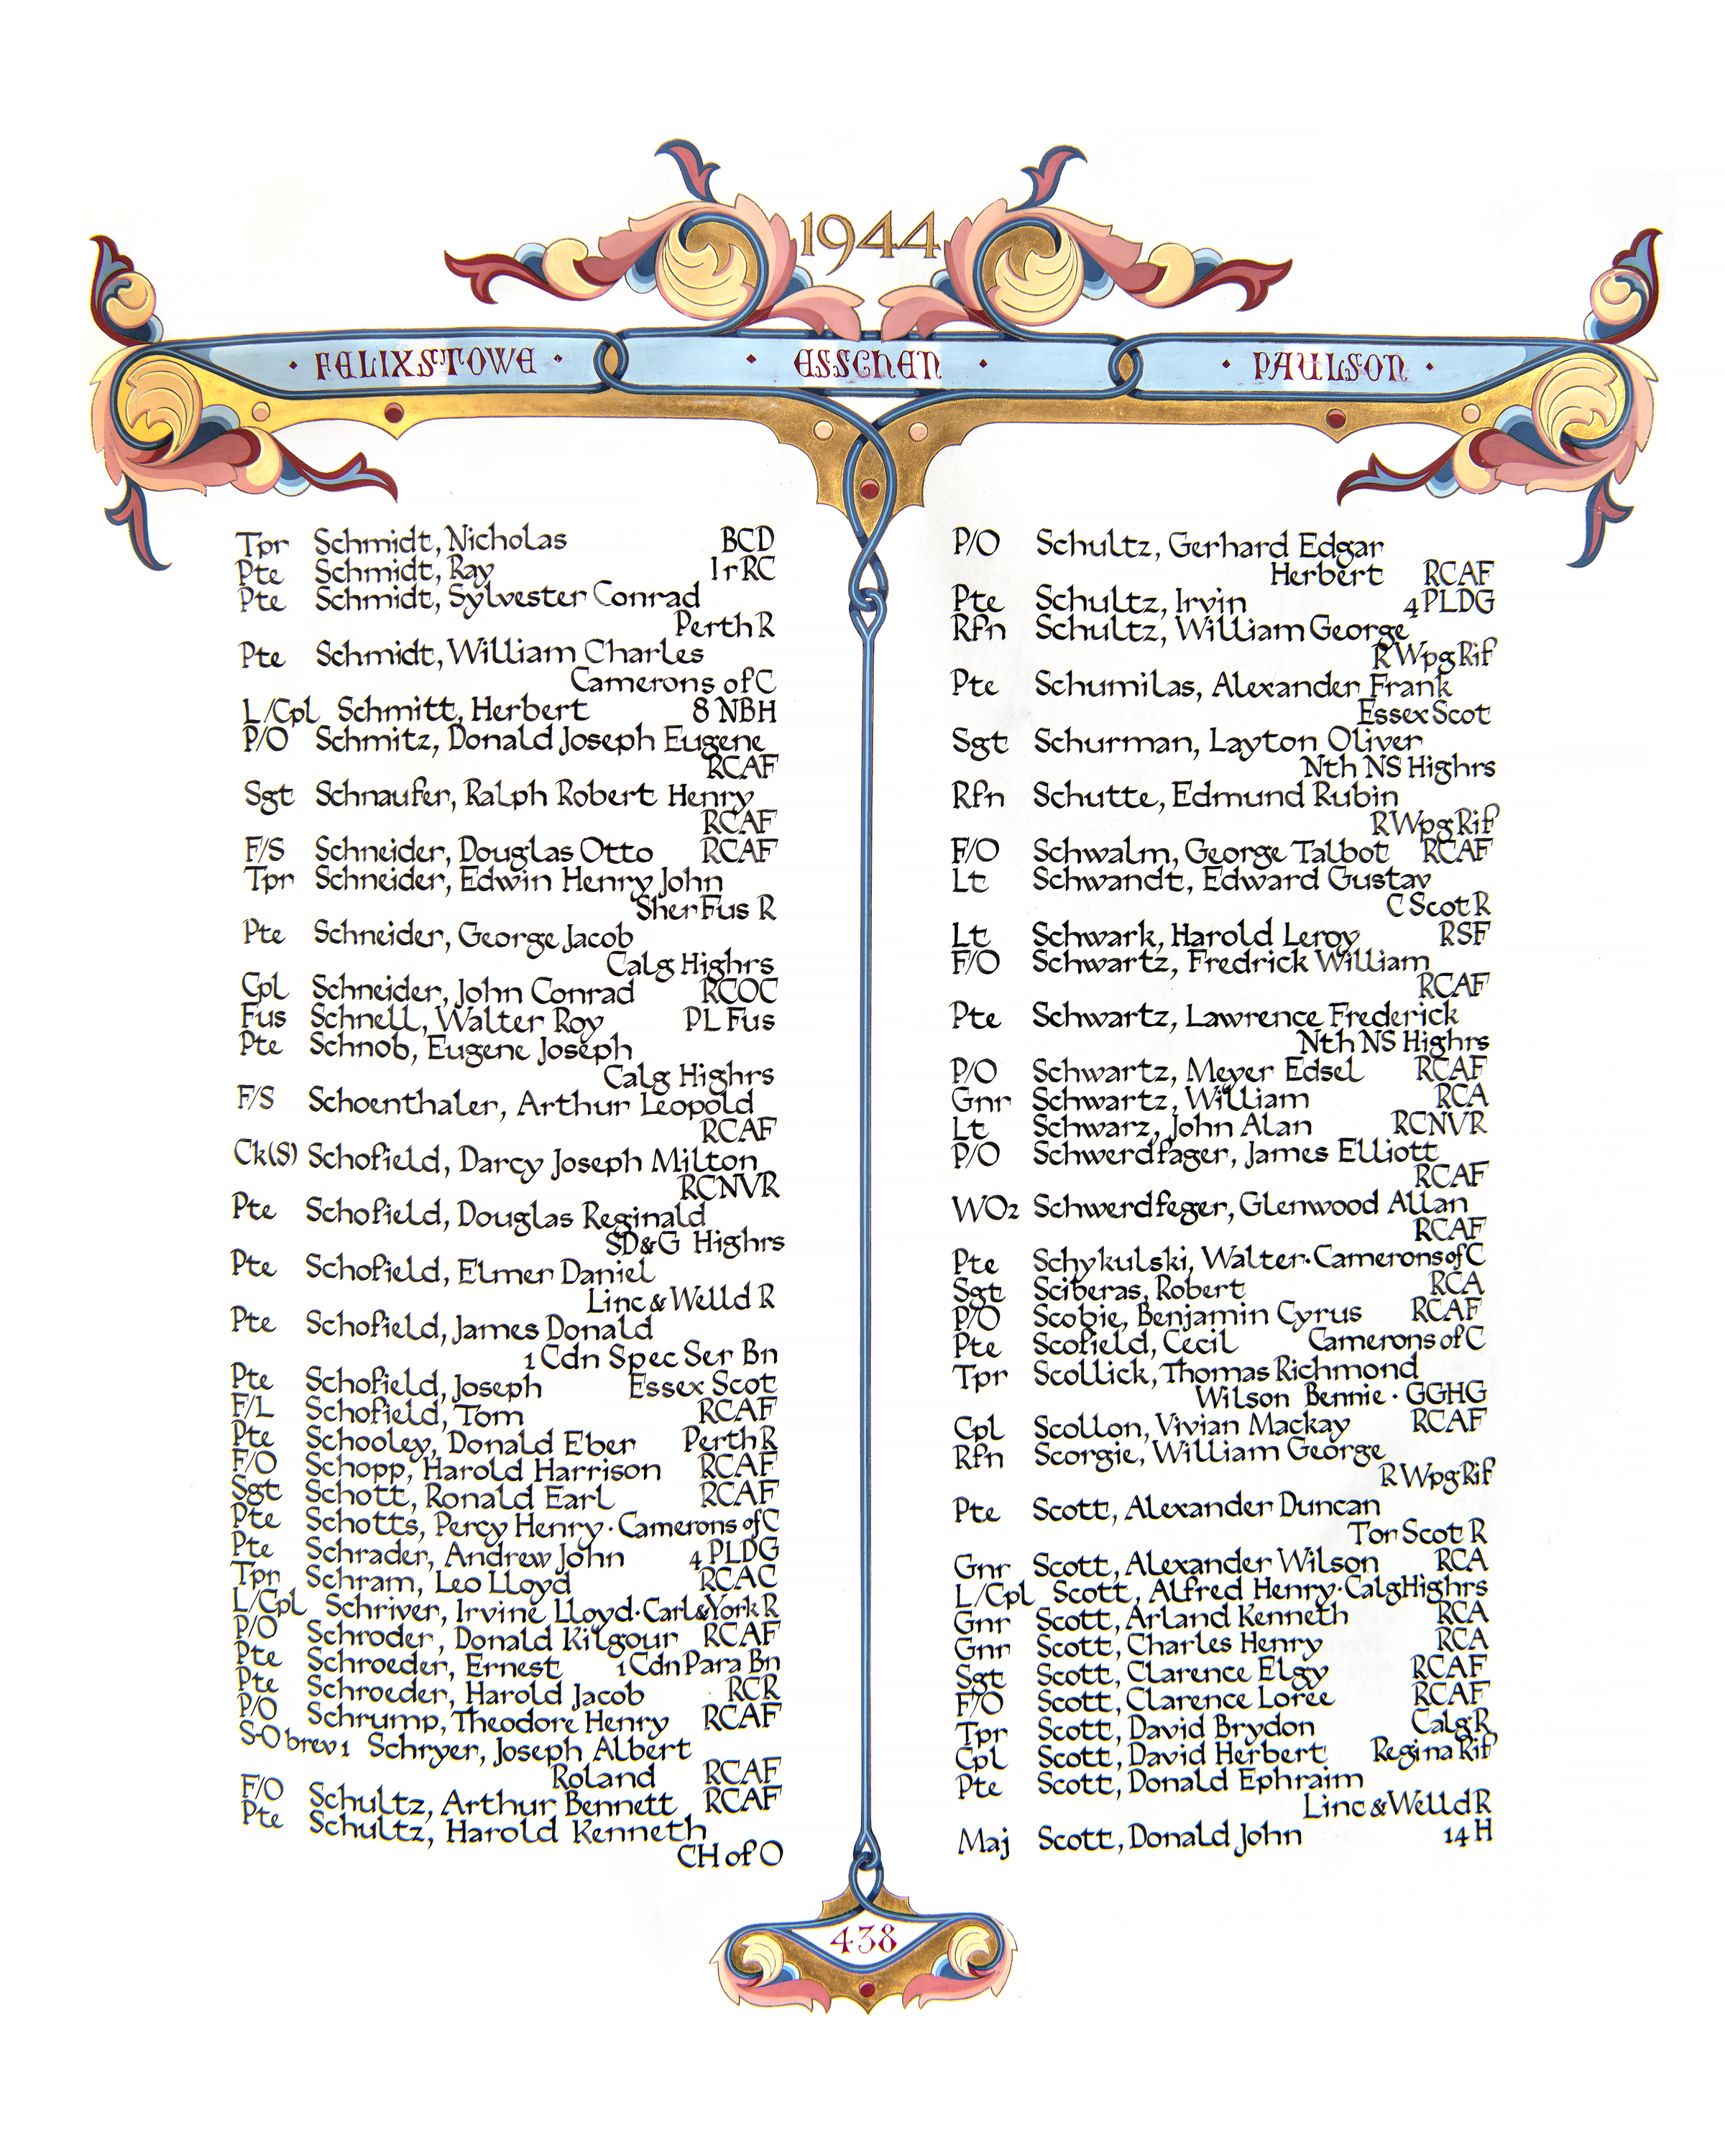 1944
· FELIXSTOWE · · ESSCHEN · · PAULSON ·
Tpr Schmidt, Nicholas BCD
Pte Schmidt, Ray IrRC
Pte Schmidt, Sylvester Conrad
Perth R
Pte Schmidt, William Charles
Camerons of C
L/Cpl Schmitt, Herbert 8 NBH
P/O Schmitz, Donald Joseph Eugene
RCAF
Sgt Schnaufer, Ralph Robert Henry
RCAF
F/S Schneider, Douglas Otto RCAF
Tpr Schneider, Edwin Henry John
Sher Fus R
Pte Schneider, George Jacob
Calg Highrs
Cpl Schneider, John Conrad RCOC
Fus Schnell, Walter Roy PL Fus
Pte Schnob, Eugene Joseph
Calg Highrs
F/S Schoenthaler, Arthur Leopold
RCAF
Ck(S) Schofield, Darcy Joseph Milton
RCNVR
Pte Schofield, Douglas Reginald
SD&G Highrs
Pte Schofield, Elmer Daniel
Linc & Welld R
Pte Schofield, James Donald
1 Cdn Spec Ser Bn
Pte Schofield, Joseph Essex Scot
F/L Schofield, Tom RCAF
Pte Schooley, Donald Eber Perth R
F/O Schopp, Harold Harrison RCAF
Sgt Schott, Ronald Earl RCAF
Pte Schotts, Percy Henry · Camerons of C
Pte Schrader, Andrew John 4 PLDG
Tpr Schram, Leo Lloyd RCAC
L/Cpl Schriver, Irvine Lloyd · Carl & York R
P/O Schroder, Donald Kilgour RCAF
Pte Schroeder, Ernest 1 Cdn Para Bn
Pte Schroeder, Harold Jacob RCR
P/O Schrump, Theodore Henry RCAF
S-O brev 1 Schryer, Joseph Albert
Roland RCAF
F/O Schultz, Arthur Bennett RCAF
Pte Schultz, Harold Kenneth
CH of O
P/O Schultz, Gerhard Edgar
Herbert RCAF
Pte Schultz, Irvin 4 PLDG
Rfn Schultz, William George
R Wpg Rif
Pte Schumilas, Alexander Frank
Essex Scot
Sgt Schurman, Layton Oliver
Nth NS Highrs
Rfn Schutte, Edmund Rubin
R Wpg Rif
F/O Schwalm, George Talbot RCAF
Lt Schwandt, Edward Gustav
C Scot R
Lt Schwark, Harold Leroy RSF
F/O Schwartz, Fredrick William
RCAF
Pte Schwartz, Lawrence Frederick
Nth NS Highrs
P/O Schwartz, Meyer Edsel RCAF
Gnr Schwartz, William RCA
Lt Schwarz, John Alan RCNVR
P/O Schwerdfager, James Elliott
RCAF
WO2 Schwerdfeger, Glenwood Allan
RCAF
Pte Schykulski, Walter · Camerons of C
Sgt Sciberas, Robert RCA
P/O Scobie, Benjamin Cyrus RCAF
Pte Scofield, Cecil Camerons of C
Tpr Scollick, Thomas Richmond
Wilson Bennie · GGHG
Cpl Scollon, Vivian Mackay RCAF
Rfn Scorgie, William George
R Wpg Rif
Pte Scott, Alexander Duncan
Tor Scot R
Gnr Scott, Alexander Wilson RCA
L/Cpl Scott, Alfred Henry · Calg Highrs
Gnr Scott, Arland Kenneth RCA
Gnr Scott, Charles Henry RCA
Sgt Scott, Clarence Elgy RCAF
F/O Scott, Clarence Loree RCAF
Tpr Scott, David Brydon Calg R
Cpl Scott, David Herbert Regina Rif
Pte Scott, Donald Ephraim
Linc & Welld R
Maj Scott, Donald John 14 H
438